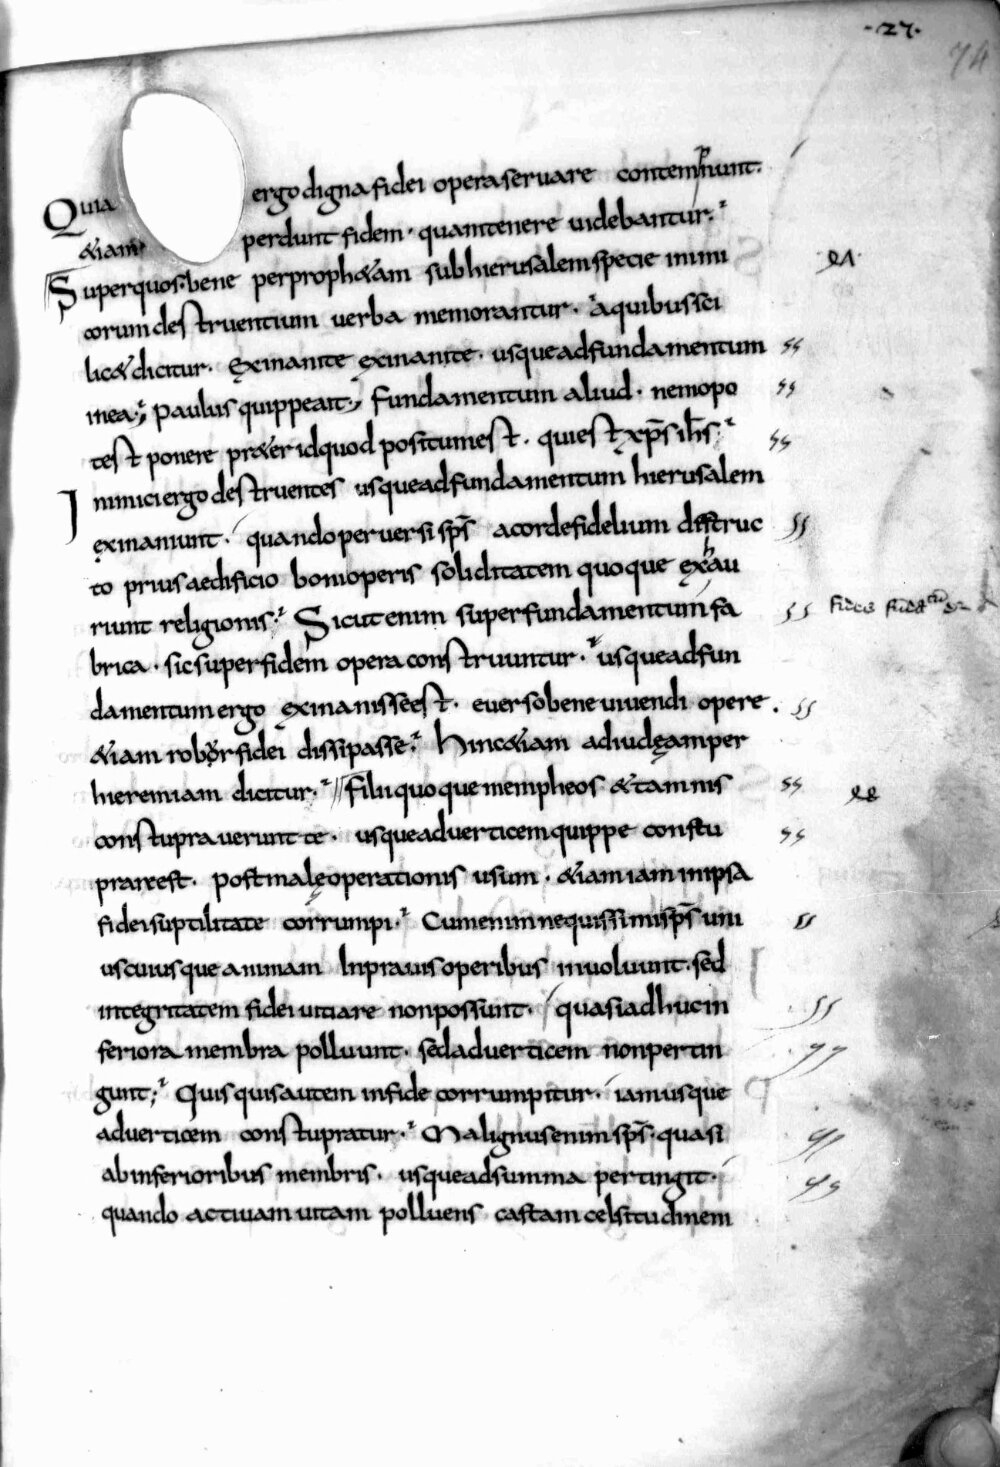 ·27·
74
Quia ergo digna fidei opera seruare contemnunt.
&iam perdunt fidem· quam tenere uidebantur.
Super quos bene per proph&am sub hierusalem specie inimi
corum destruentium uerba memorantur. a quibus sci
lic& dicitur. exinanite exinanite. usque ad fundamentum
inea; Paulus quippe ait; Fundamentum aliud. nemo po
test ponere pr&er id quod positum est. qui est xp̄s ih̄s;
Inimici ergo destruentes usque ad fundamentum hierusalem
exinaniunt. quando peruersi sp̄s a corde fidelium destruc
to prius aedificio boni operis soliditatem quoque exhau
riunt religionis. Sicut enim super fundamentum fa
brica. sic super fidem opera construuntur. usque ad fun
damentum ergo exinanisse est. euerso bene uiuendi opere.
&iam robor fidei dissipasse. Hinc &iam ad iudęam per
hieremiam dicitur. Filii quoque mempheos &tamnis
constuprauerunt te. usque ad uerticem quippe constu
prari est. post malę operationis usum. &iam iam in ipsa
fidei suptilitate corrumpi. Cum enim nequissimi sp̄s uni
uscuiusque animam In prauis operibus inuoluunt. sed
integritatem fidei uitiare non possunt. quasi adhuc in
feriora membra polluunt. sed ad uerticem non pertin
gunt; Quisquis autem in fide corrumpitur. iam usque
ad uerticem constupratur. Malignus enim sp̄s. quasi
ab inferioribus membris. usque ad summa pertingit.
quando actiuam uitam polluens castam celsitudinem